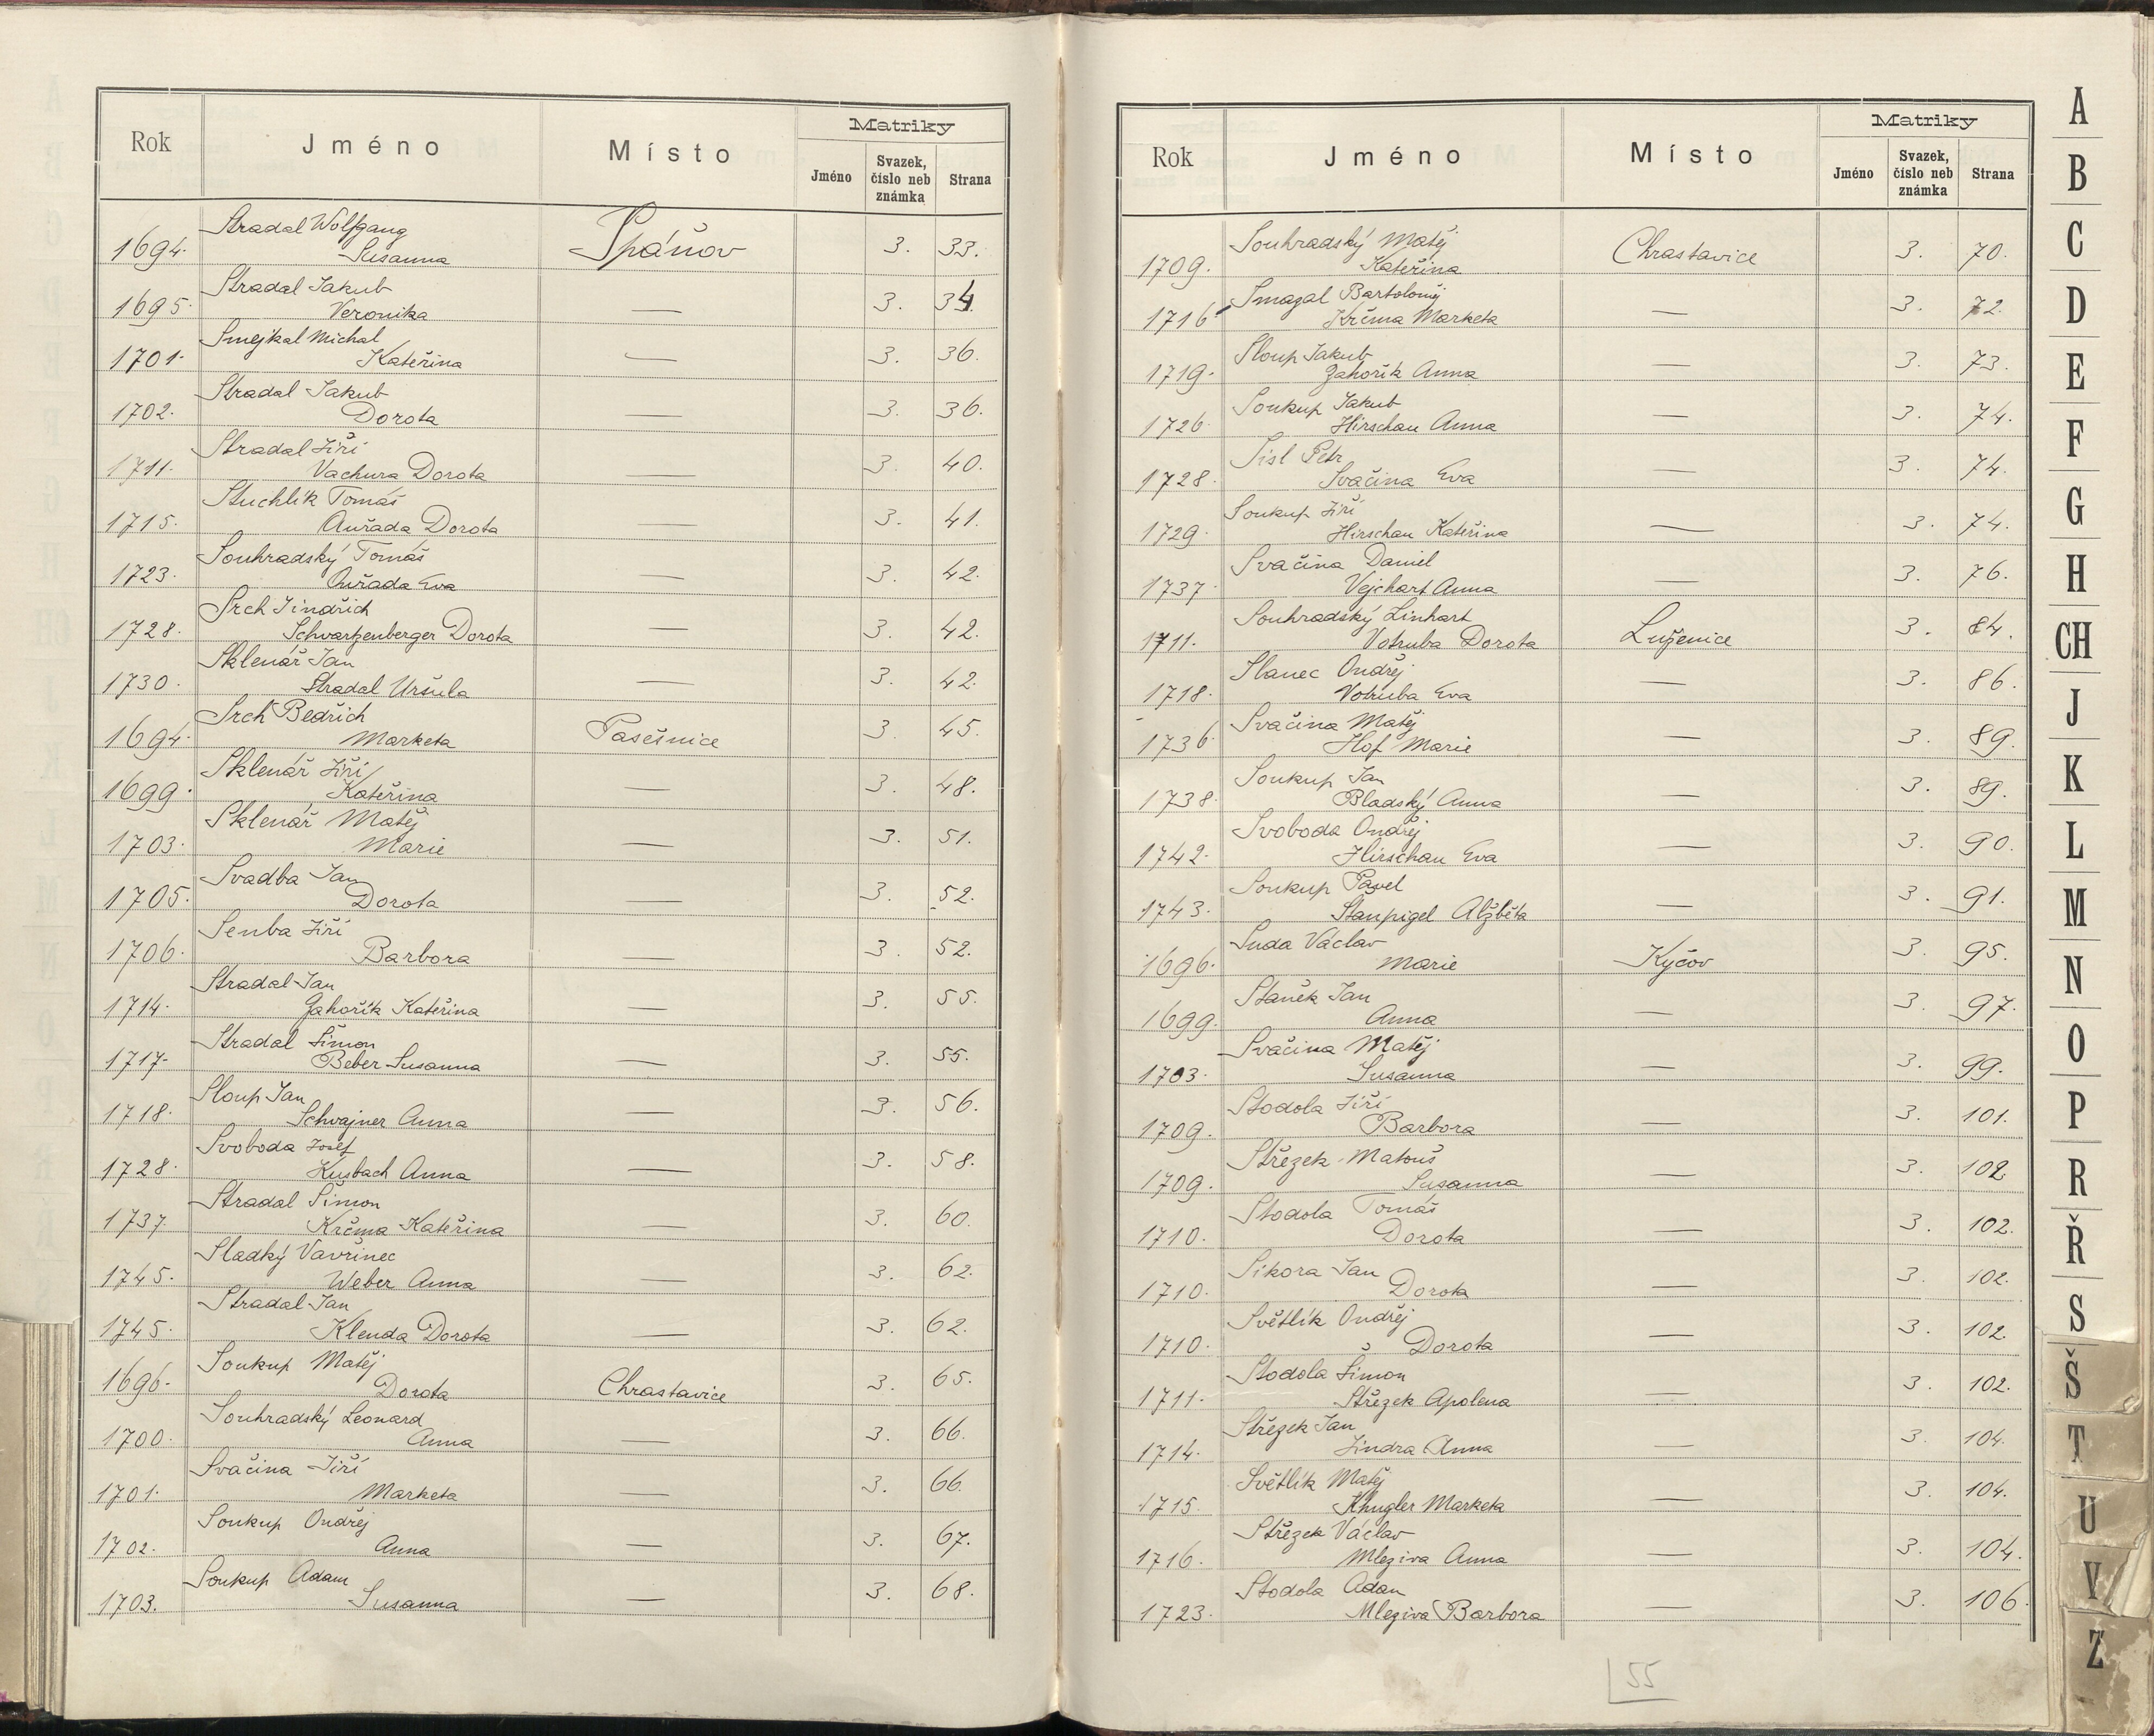 Rok Jméno Místo Matriky
Jméno Svazek, číslo neb známka Strana
Stradal Wolfgang
1694. Susanna Spáňov 3. 33.
Stradal Jakub
1695. Veronika — 3. 34.
Smejkal Michal
1701. Kateřina — 3. 36.
Stradal Jakub
1702. Dorota — 3. 36.
Stradal Jiří
1711. Vachura Dorota — 3. 40.
Stuchlík Tomáš
1715. Auřada Dorota — 3. 41.
Souhradský Tomáš
1723. Auřada Eva — 3. 42.
Srch Jindřich
1728. Schvarzenberger Dorota — 3. 42.
Sklenář Jan
1730. Stradal Uršula — 3. 42.
Srch Bedřich
1694. Marketa Pasešnice 3. 45.
Sklenář Jiří
1699. Kateřina — 3. 48.
Sklenář Matěj
1703. Marie — 3. 51.
Svadba Jan
1705. Dorota — 3. 52.
Senba Jiří
1706. Barbora — 3. 52.
Stradal Jan
1714. Zahořík Kateřina — 3. 55.
Stradal Šimon
1717. Beber Susanna — 3. 55.
Sloup Jan
1718. Schvajner Anna — 3. 56.
Svoboda Josef
1728. Kusbach Anna — 3. 58.
Stradal Šimon
1737. Krčma Kateřina — 3. 60.
Sladký Vavřinec
1745. Weber Anna — 3. 62.
Stradal Jan
1745. Klenda Dorota — 3. 62.
Soukup Matěj
1696. Dorota Chrastavice 3. 65.
Souhradský Leonard
1700. Anna — 3. 66.
Svačina Jiří
1701. Marketa — 3. 66.
Soukup Ondřej
1702. Anna — 3. 67.
Soukup Adam
1703. Susanna — 3. 68.
Rok Jméno Místo Matriky
Jméno Svazek, číslo neb známka Strana
Souhradský Matěj
1709. Kateřina Chrastavice 3. 70.
Smazal Bartoloměj
1716 Krčma Marketa — 3. 72.
Sloup Jakub
1719. Zahořík Anna — 3. 73.
Soukup Jakub
1726. Hirschau Anna — 3. 74.
Sisl Petr
1728. Svačina Eva — 3. 74.
Soukup Jiří
1729. Hirschau Kateřina — 3. 74.
Svačina Daniel
1737. Vejchart Anna — 3. 76.
Souhradský Linhart
1711. Votruba Dorota Luženice 3. 84.
Slanec Ondřej
1718. Votruba Eva — 3. 86.
Svačina Matěj
1736 Hof Marie — 3. 89.
Soukup Jan
1738. Bladský Anna — 3. 89.
Svoboda Ondřej
1742. Hirschau Eva — 3. 90.
Soukup Pavel
1743. Stanpigel Alžběta — 3. 91.
Suda Václav
1696. Marie Kyčov 3. 95.
Staněk Jan
1699. Anna — 3. 97.
Svačina Matěj
1703. Susanna — 3. 99.
Stodola Jiří
1709. Barbora — 3. 101.
Střezek Matouš
1709. Susanna — 3. 102
Stodola Tomáš
1710. Dorota — 3. 102.
Sikora Jan
1710. Dorota — 3. 102.
Světlík Ondřej
1710. Dorota — 3. 102.
Stodola Šimon
1711. Střezek Apolena — 3. 102.
Střezek Jan
1714. Jindra Anna — 3. 104.
Světlík Matěj
1715. Khugler Marketa — 3. 104.
Střezek Václav
1716. Mleziva Anna — 3. 104.
Stodola Adam
1723. Mleziva Barbora — 3. 106.
55
A
B
C
D
E
F
G
H
CH
J
K
L
M
N
O
P
R
Ř
S
Š
T
U
V
Z